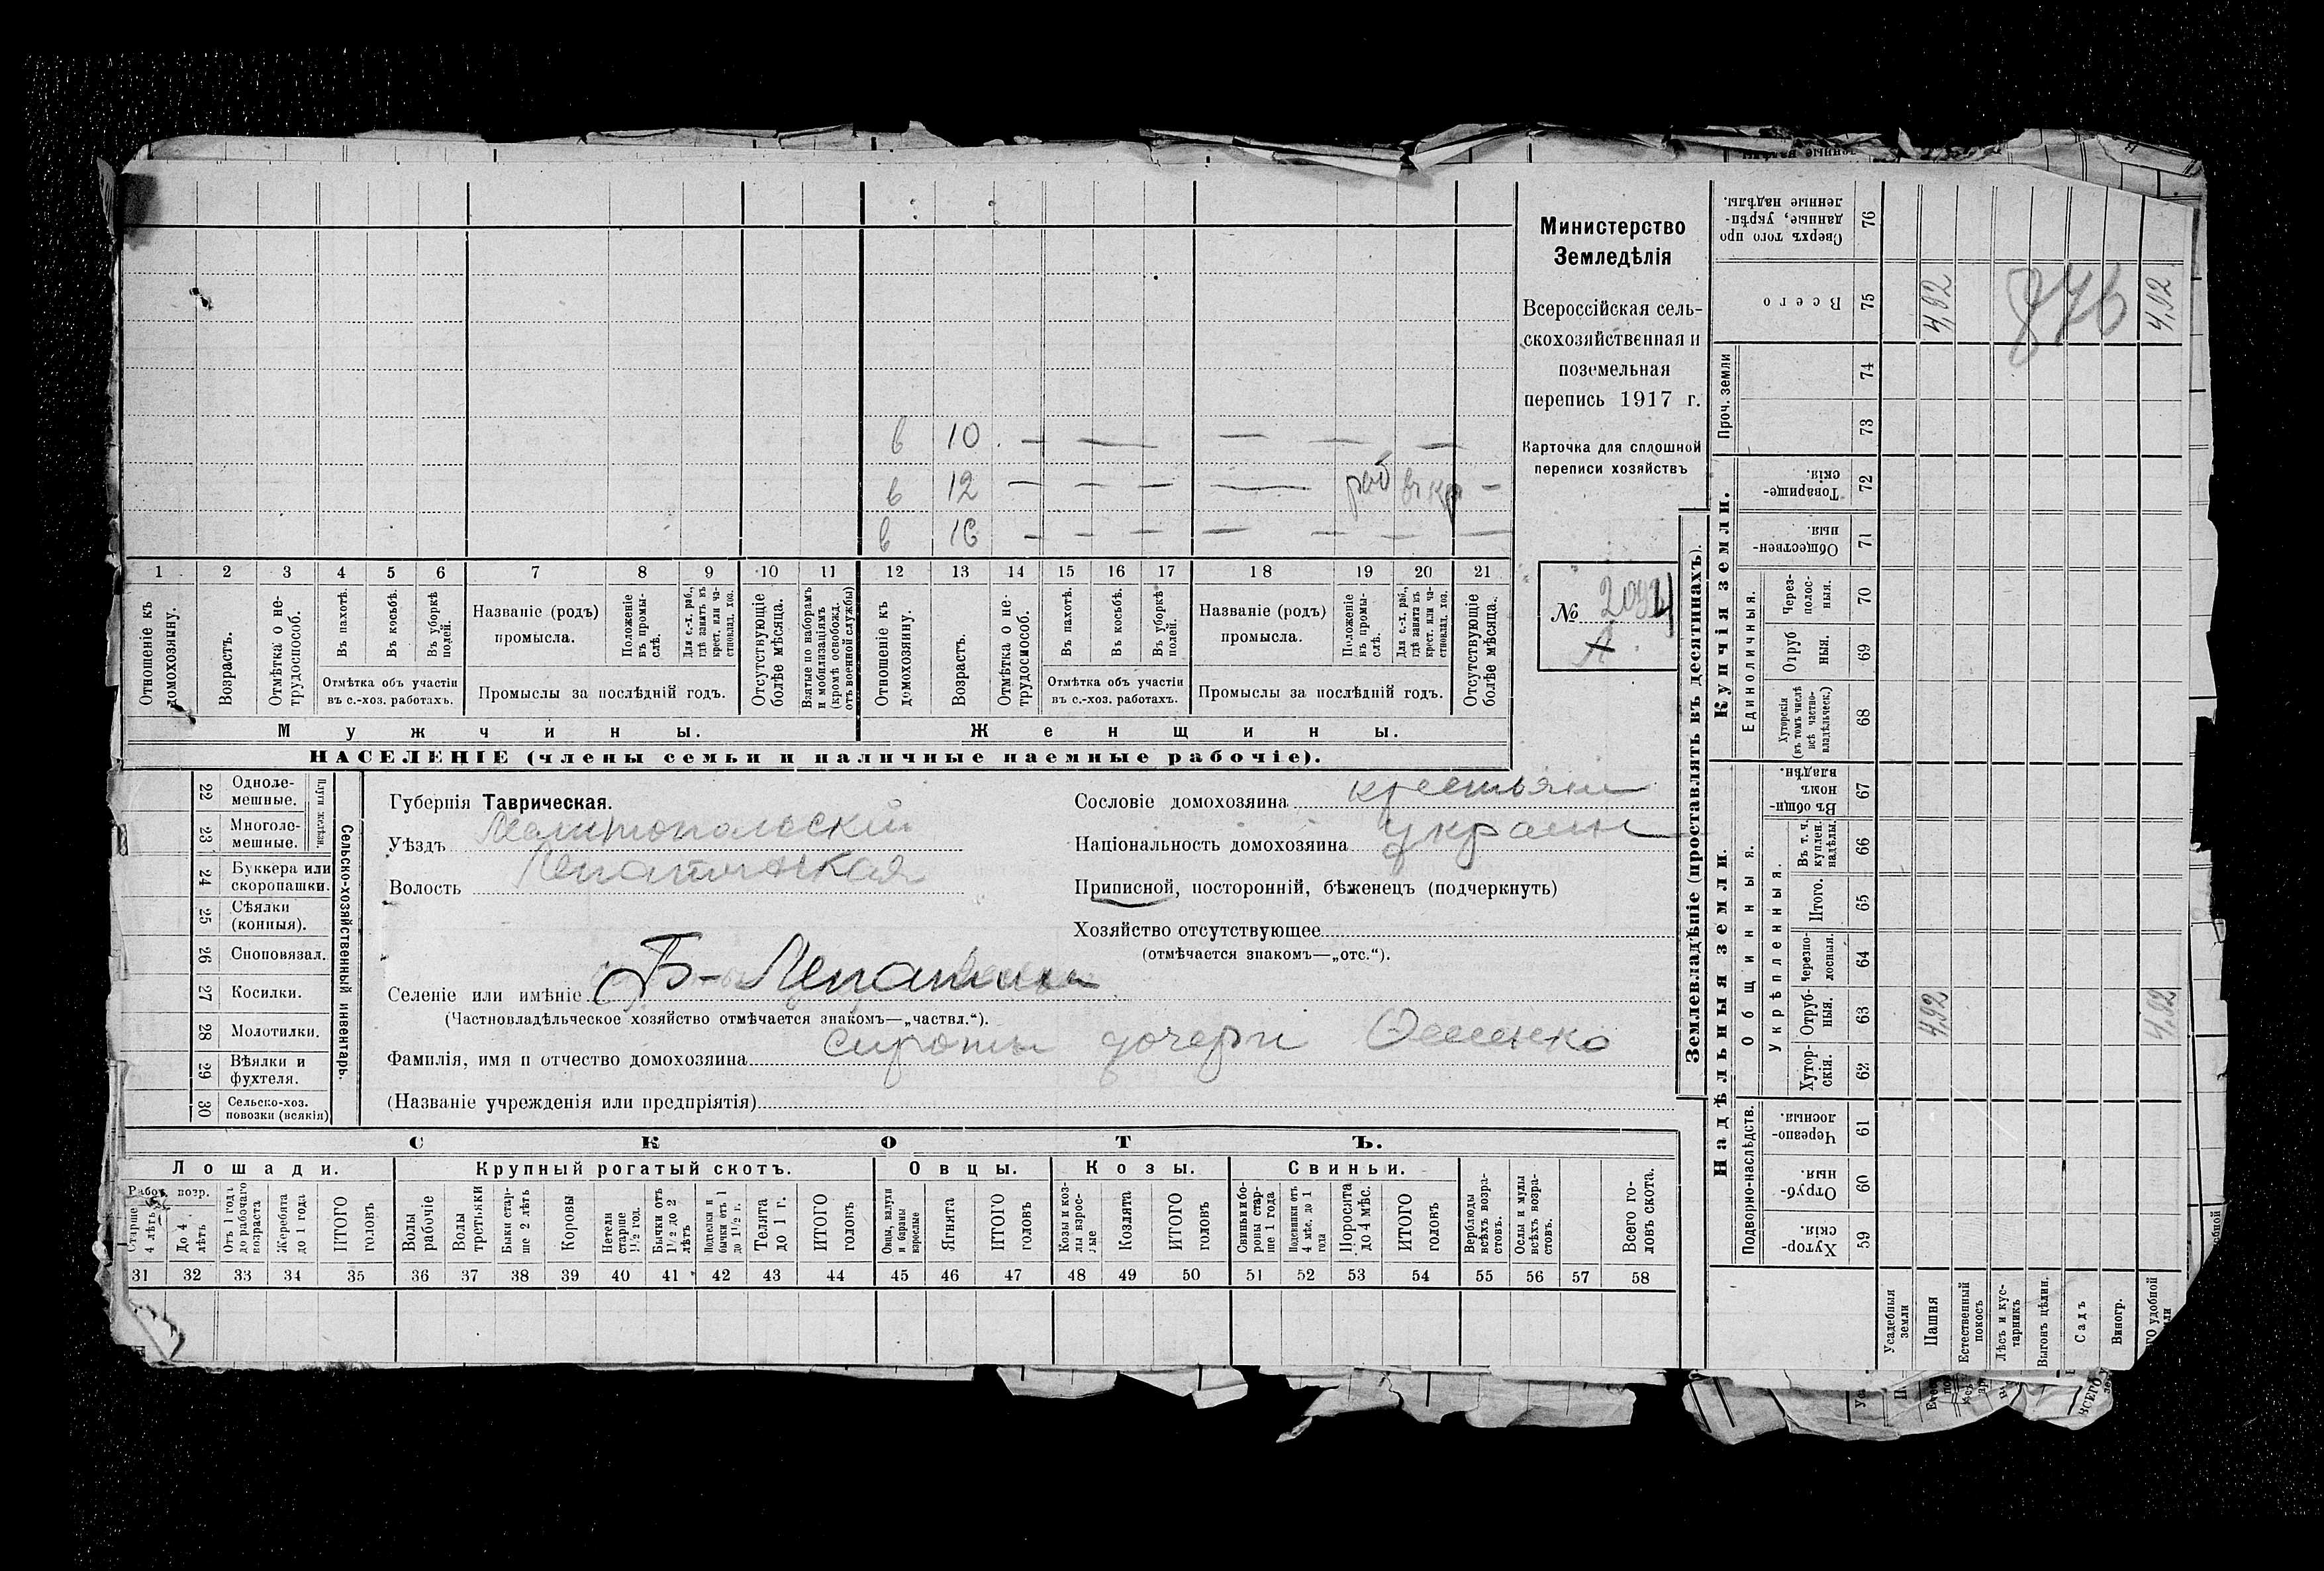 Министерство
Земледѣлія
Всероссійская сель-
скохозяйственная и
поземельная
перепись 1917 г.
Карточка для сплошной
переписи хозяйствъ
№
в 10 . — — — — —
в 12 — — — — раб въ кр —
в 16 — — — — — — —
1 2 3 4 5 6 7 8 9 10 11 12 13 14 15 16 17 18 19 20 21
Отношеніе къ домохозяину.
Возрастъ.
Отмѣтка о не-трудоспособ.
Въ пахотѣ.
Въ косьбѣ.
Въ уборкѣ полей.
Отмѣтка объ участіи
въ с.-хоз. работахъ.
Названіе (родъ)
промысла.
Положеніе въ промы-слѣ.
Для с.-х. раб., гдѣ занятъ въ крест. или ча-стновлад. хоз.
Промыслы за послѣдній годъ.
Отсутствующіе болѣе мѣсяца.
Взятые по наборамъ и мобилизаціямъ (кромѣ освобожд. отъ военной службы)
Отношеніе къ домохозяину.
Возрастъ.
Отмѣтка о не-трудоспособ.
Въ пахотѣ.
Въ косьбѣ.
Въ уборкѣ полей.
Отмѣтка объ участіи
въ с.-хоз. работахъ.
Названіе (родъ)
промысла.
Положеніе въ промы-слѣ.
Для с.-х. раб., гдѣ занята въ крест. или ча-стновлад. хоз.
Промыслы за послѣдній годъ.
Отсутствующіе болѣе мѣсяца.
Мужчины. Женщины.
НАСЕЛЕНІЕ (члены семьи и наличные наемные рабочіе).
Сельско-хозяйственный инвентарь.
Плуги желѣзн.
22 Одноле-мешные.
23 Многоле-мешные.
24 Буккера или скоропашки.
25 Сѣялки (конныя).
26 Сноповязал.
27 Косилки.
28 Молотилки.
29 Вѣялки и фухтеля.
30 Сельско-хоз. повозки (всякія)
Губернія Таврическая.
Уѣздъ Мелитопольскій
Волость Лепатихская
Селеніе или имѣніе Б-Лепатиха
(Частновладѣльческое хозяйство отмѣчается знакомъ—„частвл.“).
Фамилія, имя и отчество домохозяина Сироты дочери
(Названіе учрежденія или предпріятія)
Сословіе домохозяина крестьяне
Національность домохозяина украин
Приписной, посторонній, бѣженецъ (подчеркнуть)
Хозяйство отсутствующее
(отмѣчается знакомъ—„отс.“).
СКОТЪ.
Лошади. Крупный рогатый скотъ. Овцы. Козы. Свиньи.
Работ. возр.
Старше 4 лѣтъ
До 4 лѣтъ
Отъ 1 года до рабочаго возраста
Жеребята до 1 года
ИТОГО головъ
Волы рабочіе
Волы третьяки
Быки стар-ше 2 лѣтъ
Коровы
Нетели старше 1½ год.
Бычки отъ 1½ до 2 лѣтъ
Подтелки и бычки отъ 1 до 1½ г.
Телята до 1 г.
ИТОГО головъ
Овцы, валухи и бараны взрослые
Ягнята
ИТОГО головъ
Козы и коз-лы взрос-лые
Козлята
ИТОГО головъ
Свиньи и бо-ровы стар-ше 1 года
Подсвинки отъ 4 мѣс. до 1 года
Поросята до 4 мѣс.
ИТОГО головъ
Верблюды всѣхъ возра-стовъ.
Ослы и мулы всѣхъ возра-стовъ.
Всего го-ловъ скота.
31 32 33 34 35 36 37 38 39 40 41 42 43 44 45 46 47 48 49 50 51 52 53 54 55 56 57 58
Землевладѣніе (проставлять въ десятинахъ).
Надѣльныя земли. Купчія земли. Проч. земли
Подворно-наслѣдств.
Общинныя.
Укрѣпленныя.
Единоличныя.
Хутор-скія. 59
Отруб-ныя. 60
Черезпо-лосныя. 61
Хутор-скія. 62
Отруб-ныя. 63
Черезпо-лосныя. 64
Итого. 65
Въ т. ч. куплен. надѣлы. 66
Въ общин-номъ владѣн. 67
Хуторскія (въ томъ числѣ всѣ частно-владѣльческ.) 68
Отруб ныя. 69
Через-полос-ныя. 70
Обществен-ныя. 71
Товарище-скія. 72
73
74
Всего 75
Сверхъ того про данные, укрѣп-ленные надѣлы. 76
Усадебныя земли
Пашня 4,92 4,92
Естественный покосъ
Лѣсъ и кус-тарникъ
Выгонъ цѣлин.
Садъ
Виногр.
удобной 4,92 4,92
876